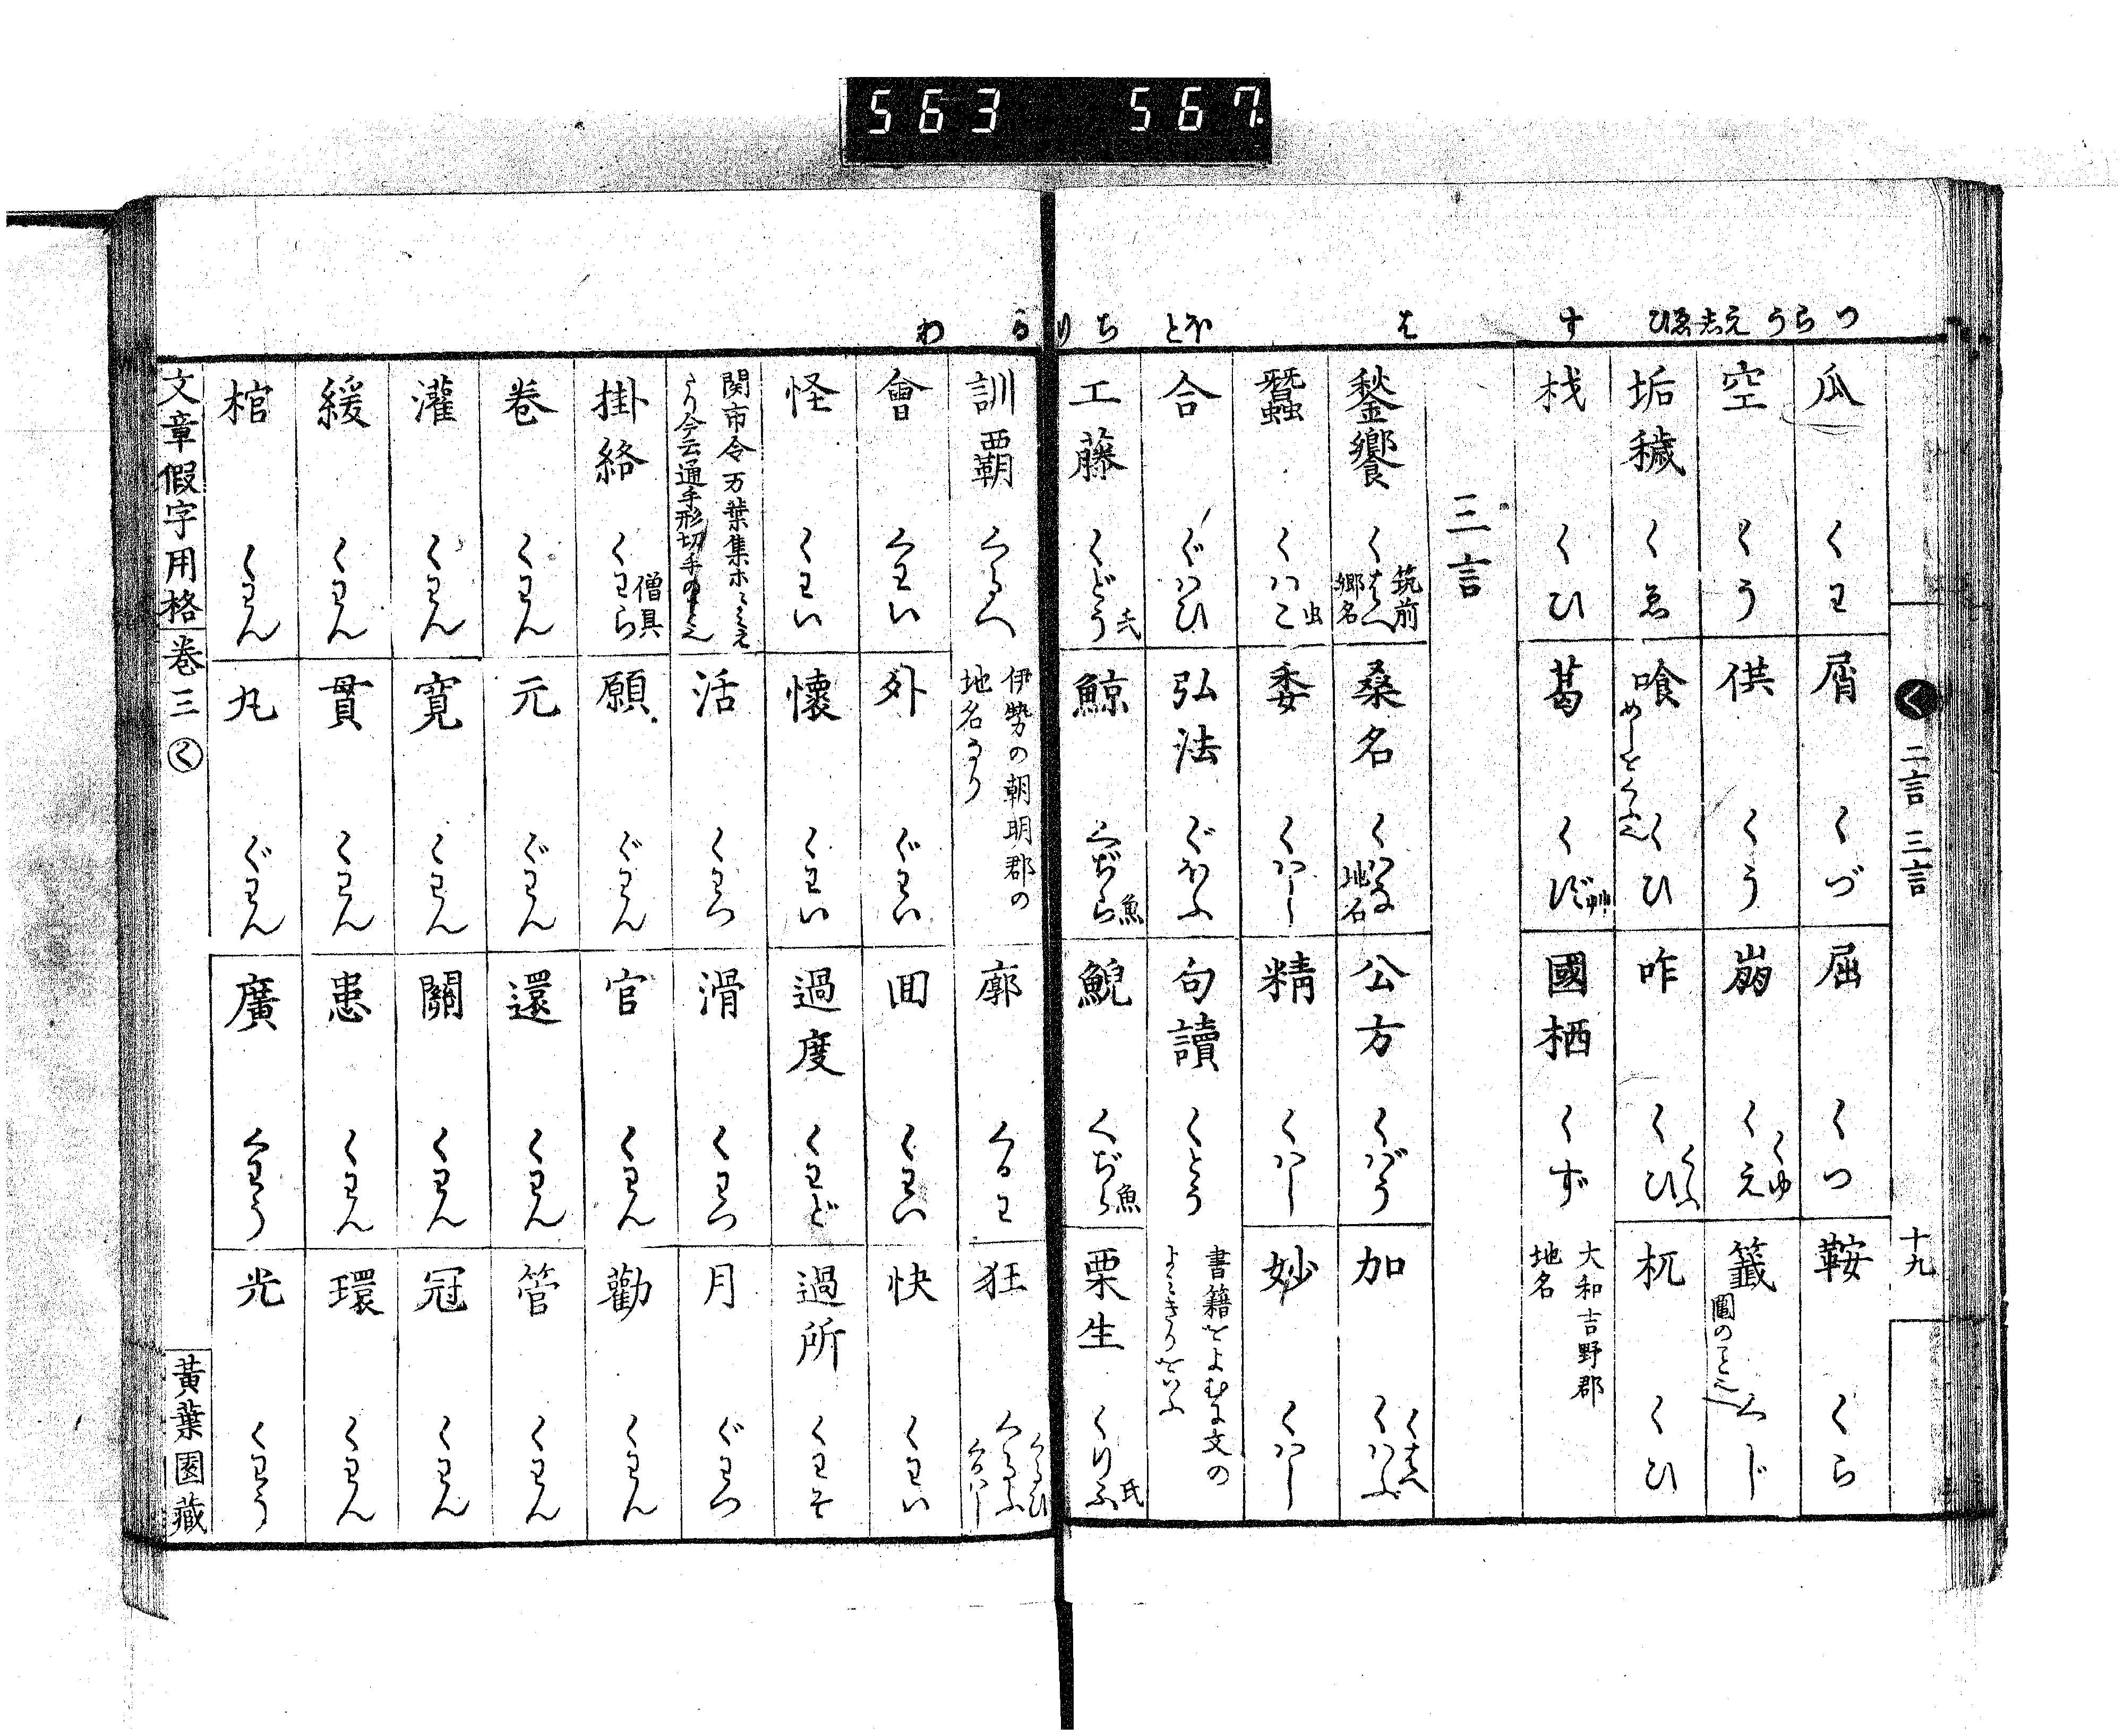 563 567.
つ らう え志 ゑひ す は ほ と ち り る わ
く 二言 三言 十九
瓜 くわ 屑 くづ 屈 くつ 鞍 くら
空 くう 供 くう 崩 くえ くゆ 籤 圖のこと也 くじ
垢穢 くゑ 喰 めしをくふ也 くひ 咋 くひ くふ 杌 くひ
杙 くひ 葛 くず 艸 國栖 くず 大和吉野郡 地名
三言
鍫饗 くはへ 筑前 郷名 桑名 くはな 地名 公方 くばう 加 くはふ くはへ
蠶 くはこ 虫 委 くはし 精 くはし 妙 くはし
合 ぐはひ 弘法 ぐほふ 句讀 くとう 書籍をよむに文の よみきりをいふ
工藤 くどう 氏 鯨 くぢら 魚 鯢 くぢら 魚 栗生 くりふ 氏
訓覇 くるへ 伊勢の朝明郡の 地名なり 廓 くるわ 狂 くるふ くるひ くるはし
會 くわい 外 ぐわい 回 くわい 快 くわい
怪 くわい 懷 くわい 過度 くわど 過所 くわそ
関市令万葉集ホニミえ たり今云通手形切手のこと也 活 くわつ 滑 くわつ 月 ぐわつ
掛絡 くわら 僧具 願 ぐわん 官 くわん 勸 くわん
巻 くわん 元 ぐわん 還 くわん 管 くわん
灌 くわん 寛 くわん 關 くわん 冠 くわん
緩 くわん 貫 くわん 患 くわん 環 くわん
棺 くわん 丸 ぐわん 廣 くわう 光 くわう
文章假字用格 巻三 く 黃葉園藏